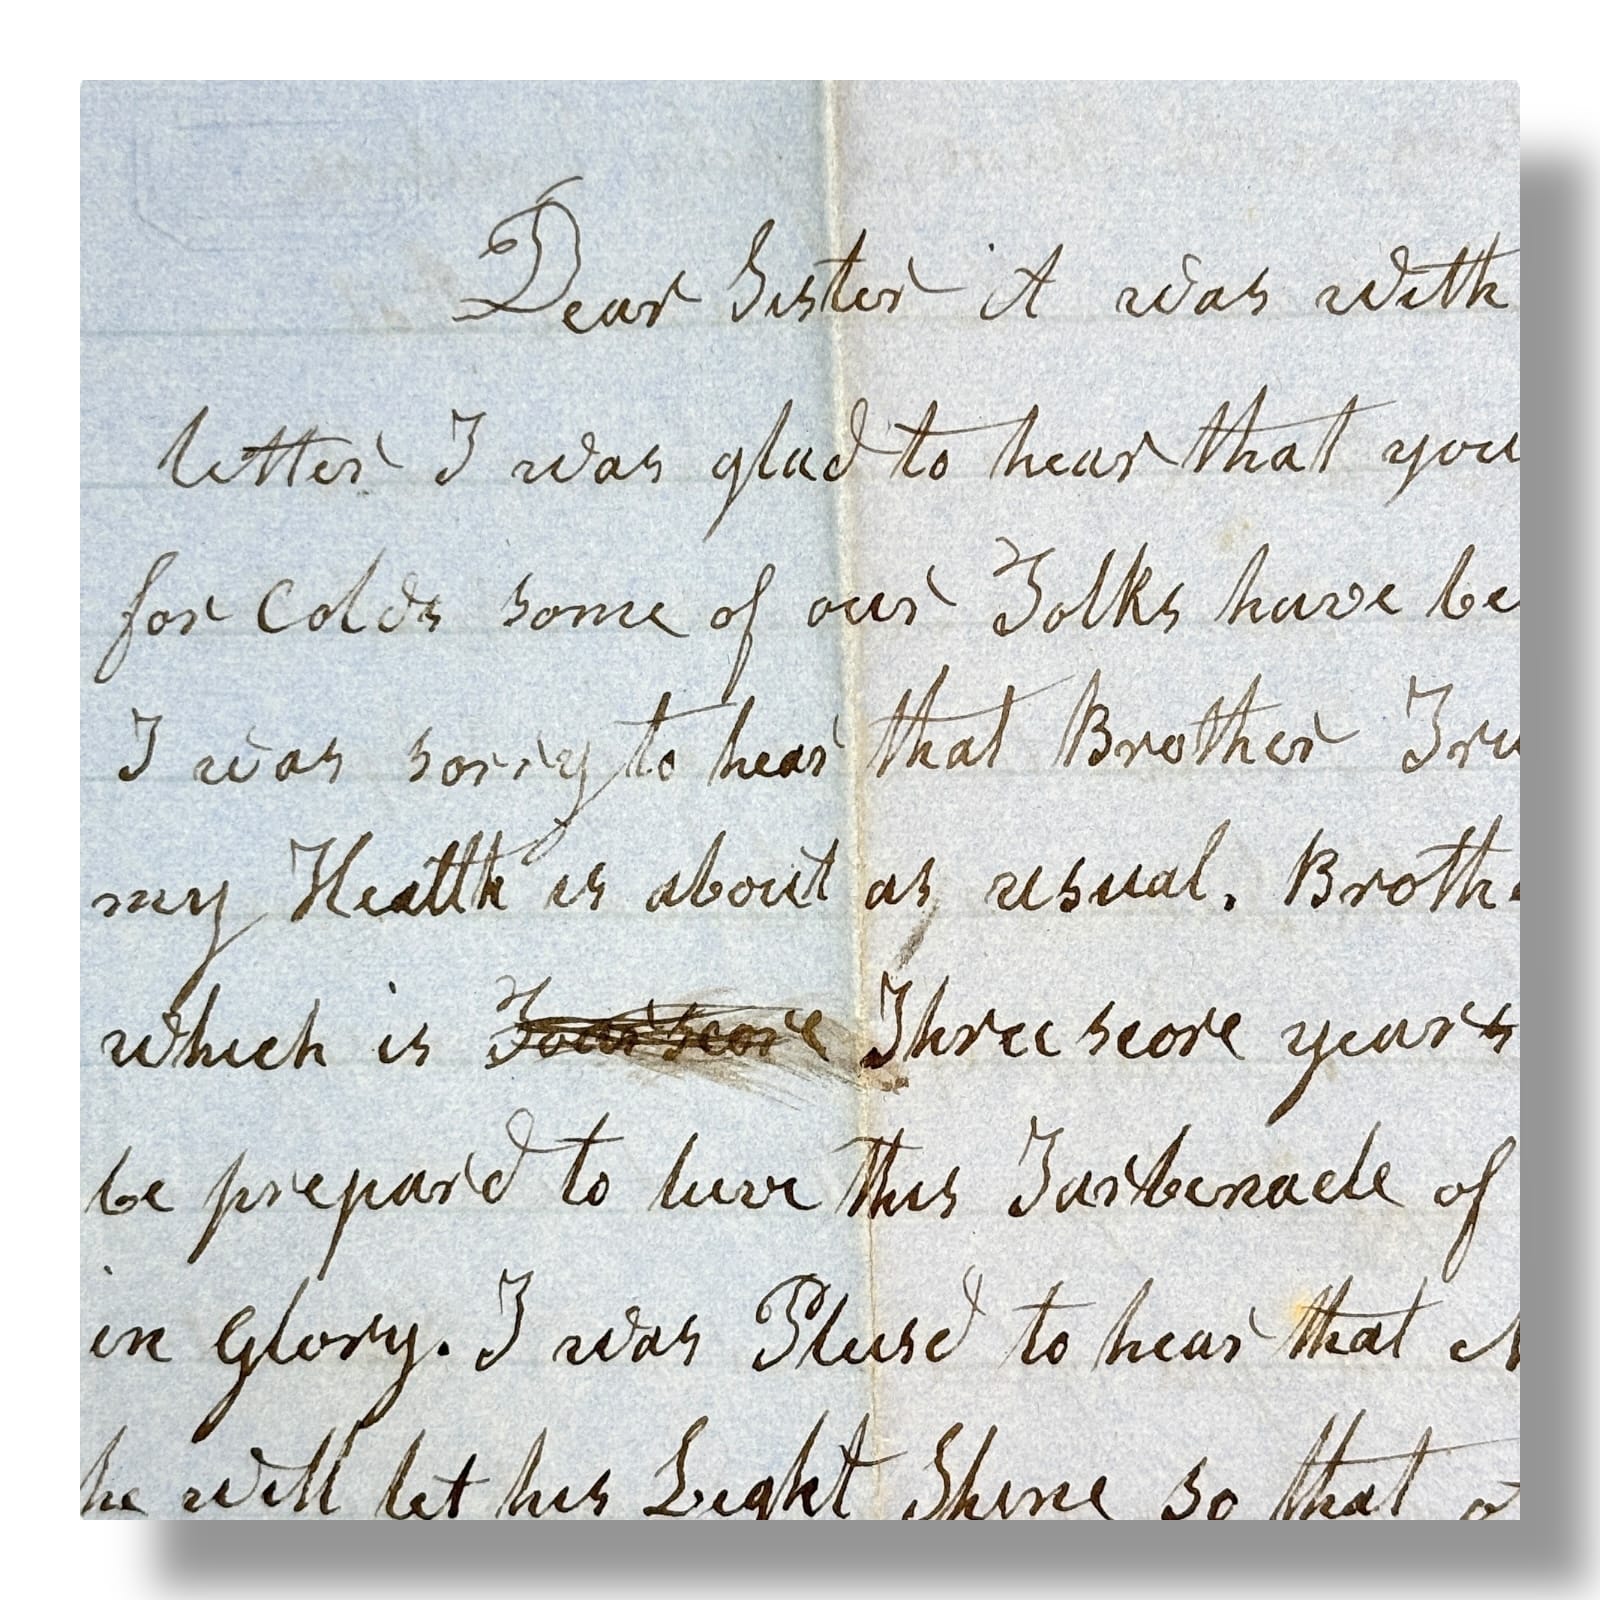 Dear Sister it was with
letter I was glad to hear that you
for Colds some of our Folks have be
I was sorry to hear that Brother Tru
my Health is about as usual. Broth
which is Fourscore Three score years
be prepard to leive this Tarbenacle of
in Glory. I was Plesed to hear that
he will let his Light Shine so that